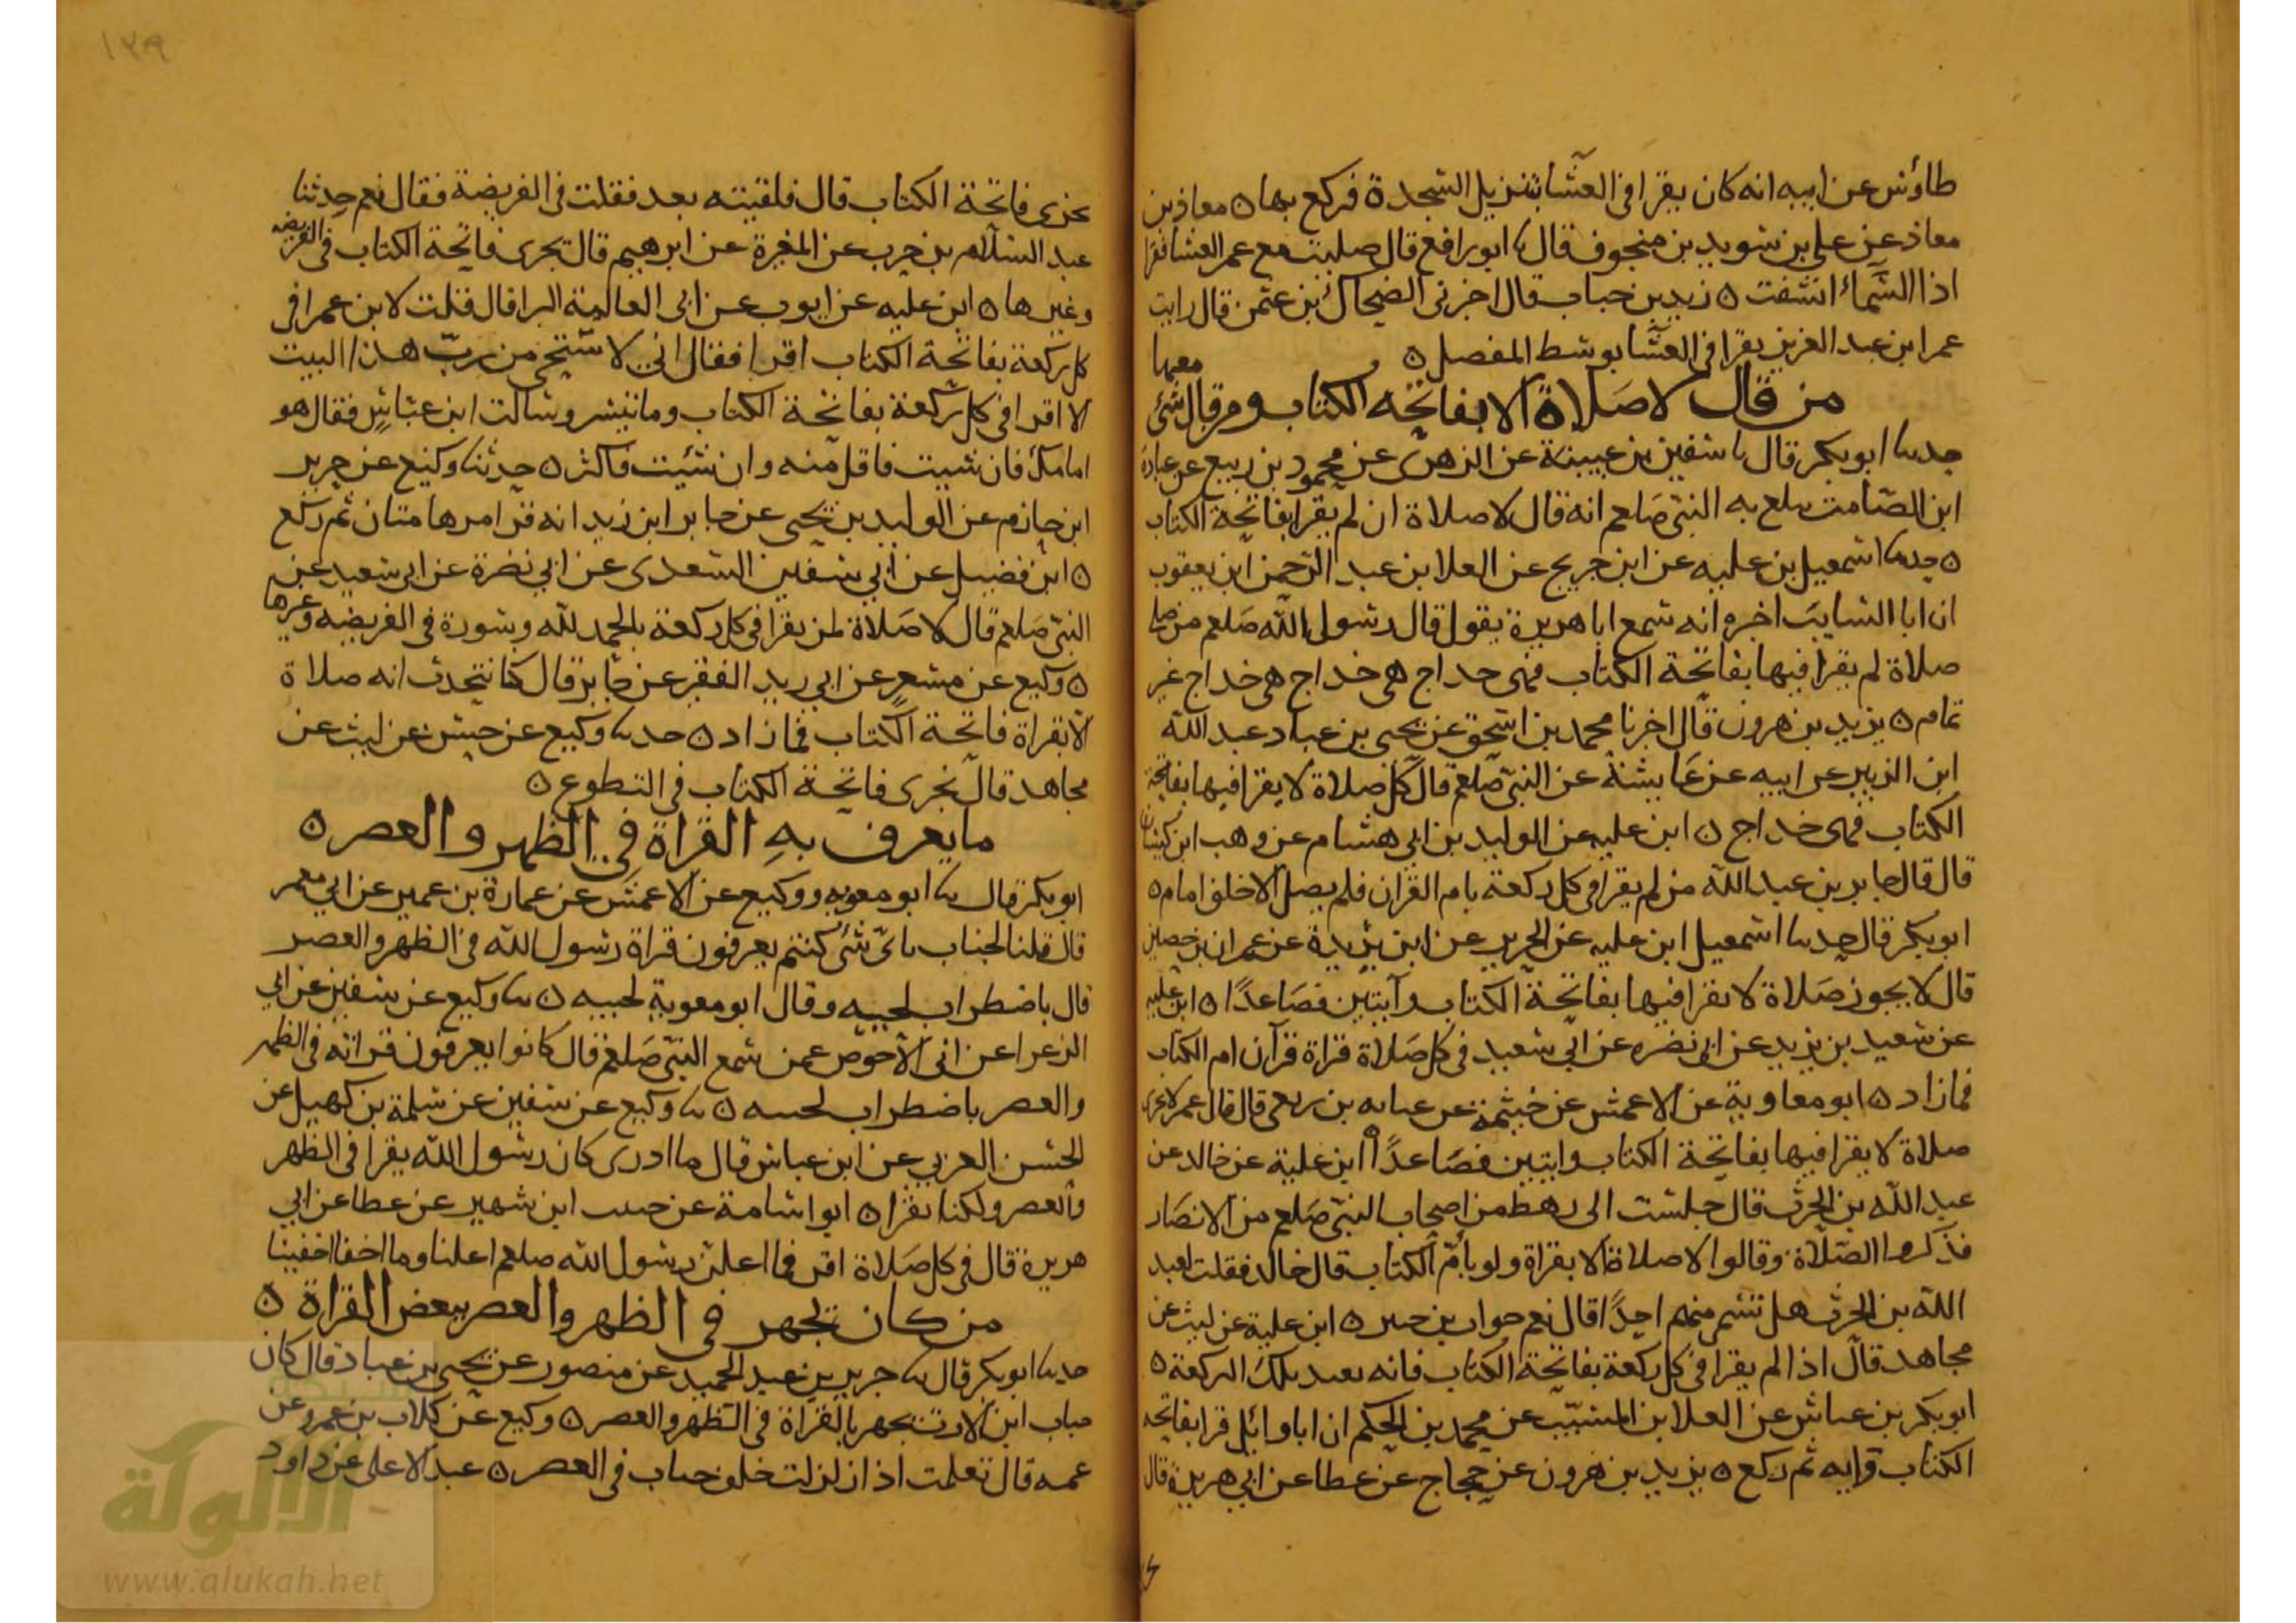 طاؤس عن ابيه انه كان يقرا في العشا بتنزيل السجدة فركع بها ٥ معاذ بن
معاذ عن علي بن سويد بن منجوف قال ثنا ابو رافع قال صليت مع عمر العشا فقرا
اذا السماء انشقت ٥ زيد بن حباب قال اخبرني الضحاك بن عثمن قال رايت
عمر ابن عبد العزيز يقرا في العشا بوسط المفصل ٥
من قال لا صلاة الا بفاتحه الكتاب ومن قال وشئ معها
حدثنا ابو بكر قال نا سفين بن عيينة عن الزهرى عن محمود بن ربيع عن عبادة
ابن الصامت يبلغ به النبي صلعم انه قال لا صلاة ان لم يقرا بفاتحة الكتاب
٥ حدثنا اسمعيل بن عليه عن ابن جريج عن العلا بن عبد الرحمن ابن يعقوب
ان ابا السايب اخبره انه سمع ابا هريرة يقول قال رسول الله صلعم من صلى
صلاة لم يقرا فيها بفاتحة الكتاب فهى خداج هى خداج هى خداج غير
تمام ٥ يزيد بن هرون قال اخبرنا محمد بن اسحق عن يحيى بن عباد عبد الله
ابن الزبير عن ابيه عن عايشة عن النبي صلعم قال كل صلاة لا يقرا فيها بفاتحة
الكتاب فهى خداج ٥ ابن عليه عن الوليد بن ابي هشام عن وهب ابن كيسان
قال قال جابر بن عبد الله من لم يقرا في كل ركعة بام القران فلم يصل الا خلف امام ٥
ابو بكر قال حدثنا اسمعيل ابن عليه عن الجرير عن ابن بريدة عن عمران بن حصين
قال لا يجوز صلاة لا يقرا فيها بفاتحة الكتاب وآيتين فصاعدًا ٥ ابن عليه
عن سعيد بن يزيد عن ابي نضره عن ابي سعيد في كل صلاة قراة قرآن ام الكتاب
فمازاد ٥ ابو معاوية عن الاعمش عن خيثمة عن عبايه بن ربعى قال قال عمر لا تجزى
صلاة لا يقرا فيها بفاتحة الكتاب وايتين فصاعدًا ٥ ابن علية عن خالد عن
عبد الله بن الحرث قال جلست الى رهط من اصحاب النبي صلعم من الانصار
فذكروا الصلاة وقالوا لا صلاة الا بقراة ولو بام الكتاب قال خالد فقلت لعبد
الله بن الحرث هل تسم منهم احدًا قال نعم خوات بن جبير ٥ ابن علية عن ليث عن
مجاهد قال اذا لم يقرا في كل ركعة بفاتحة الكتاب فانه يعيد تلك الركعة ٥
ابو بكر بن عياش عن العلا بن المسيب عن محمد بن الحكم ان ابا وائل قرا بفاتحه
الكتاب وآيه ثم ركع ٥ يزيد بن هرون عن حجاج عن عطا عن ابي هريرة قال
١٣٩
تجزى فاتحة الكتاب قال فلقيته بعد فقلت في الفريضة فقال نعم حدثنا
عبد السلام بن حرب عن المغيرة عن ابرهيم قال تجزى فاتحة الكتاب في الفريضه
وغيرها ٥ ابن عليه عن ايوب عن ابي العالية البرا قال قلت لابن عمر افي
كل ركعة بفاتحة الكتاب اقرا فقال اني لاستحي من رب هذا البيت
الا اقرا في كل ركعة بفاتحة الكتاب وما تيسر وسالت ابن عباس فقال هو
امامك فان شيت فاقل منه وان شئيت فاكثر ٥ حدثنا وكيع عن جرير
ابن حازم عن الوليد بن يحيى عن جابر ابن زيد انه قرا مدهامتان ثم ركع
٥ ابن فضيل عن ابي سفين السعدى عن ابي نضرة عن ابي سعيد عن
النبي صلعم قال لا صلاة لمن يقرا في كل ركعة بالحمد لله وسورة في الفريضه وغيرها
٥ وكيع عن مسعر عن ابي زيد الفقير عن جابر قال كنا نتحدث انه صلاة
الا بقراة فاتحة الكتاب فمازاد ٥ حدثنا وكيع عن حسن عن ليث عن
مجاهد قال تجزى فاتحة الكتاب في التطوع ٥
ما يعرف به القراة في الظهر والعصر ٥
ابو بكر قال ثنا ابو معويه ووكيع عن الاعمش عن عمارة بن عمير عن ابي معمر
قال قلنا لخباب باى شئ كنتم يعرفون قراة رسول الله في الظهر والعصر
قال باضطراب لحييه وقال ابو معوية لحييه ٥ ثنا وكيع عن سفين عن ابي
الزعرا عن ابي الاحوص عمن سمع النبي صلعم قال كانوا يعرفون قراته في الظهر
والعصر باضطراب لحييه ٥ ثنا وكيع عن سفين عن سلمة بن كهيل عن
الحسن العرني عن ابن عباس قال ما ادرى كان رسول الله يقرا في الظهر
والعصر ولكنا نقرا ٥ ابو اسامة عن حبيب ابن شهير عن عطا عن ابي
هريرة قال في كل صلاة اقرا فما اعلن رسول الله صلعم اعلنا وما اخفا اخفينا
من كان يجهر في الظهر والعصر ببعض القراة ٥
حدثنا ابو بكر قال ثنا جرير بن عبد الحميد عن منصور عن يحيى بن عباد قال كان
خباب ابن الارت يجهر بالقراة في الظهر والعصر ٥ وكيع عن كلاب بن عمرو عن
عمه قال تعلمت اذا زلزلت خلف خباب في العصر ٥ عبد الاعلى عن داود
شبكة
الألوكة
www.alukah.net